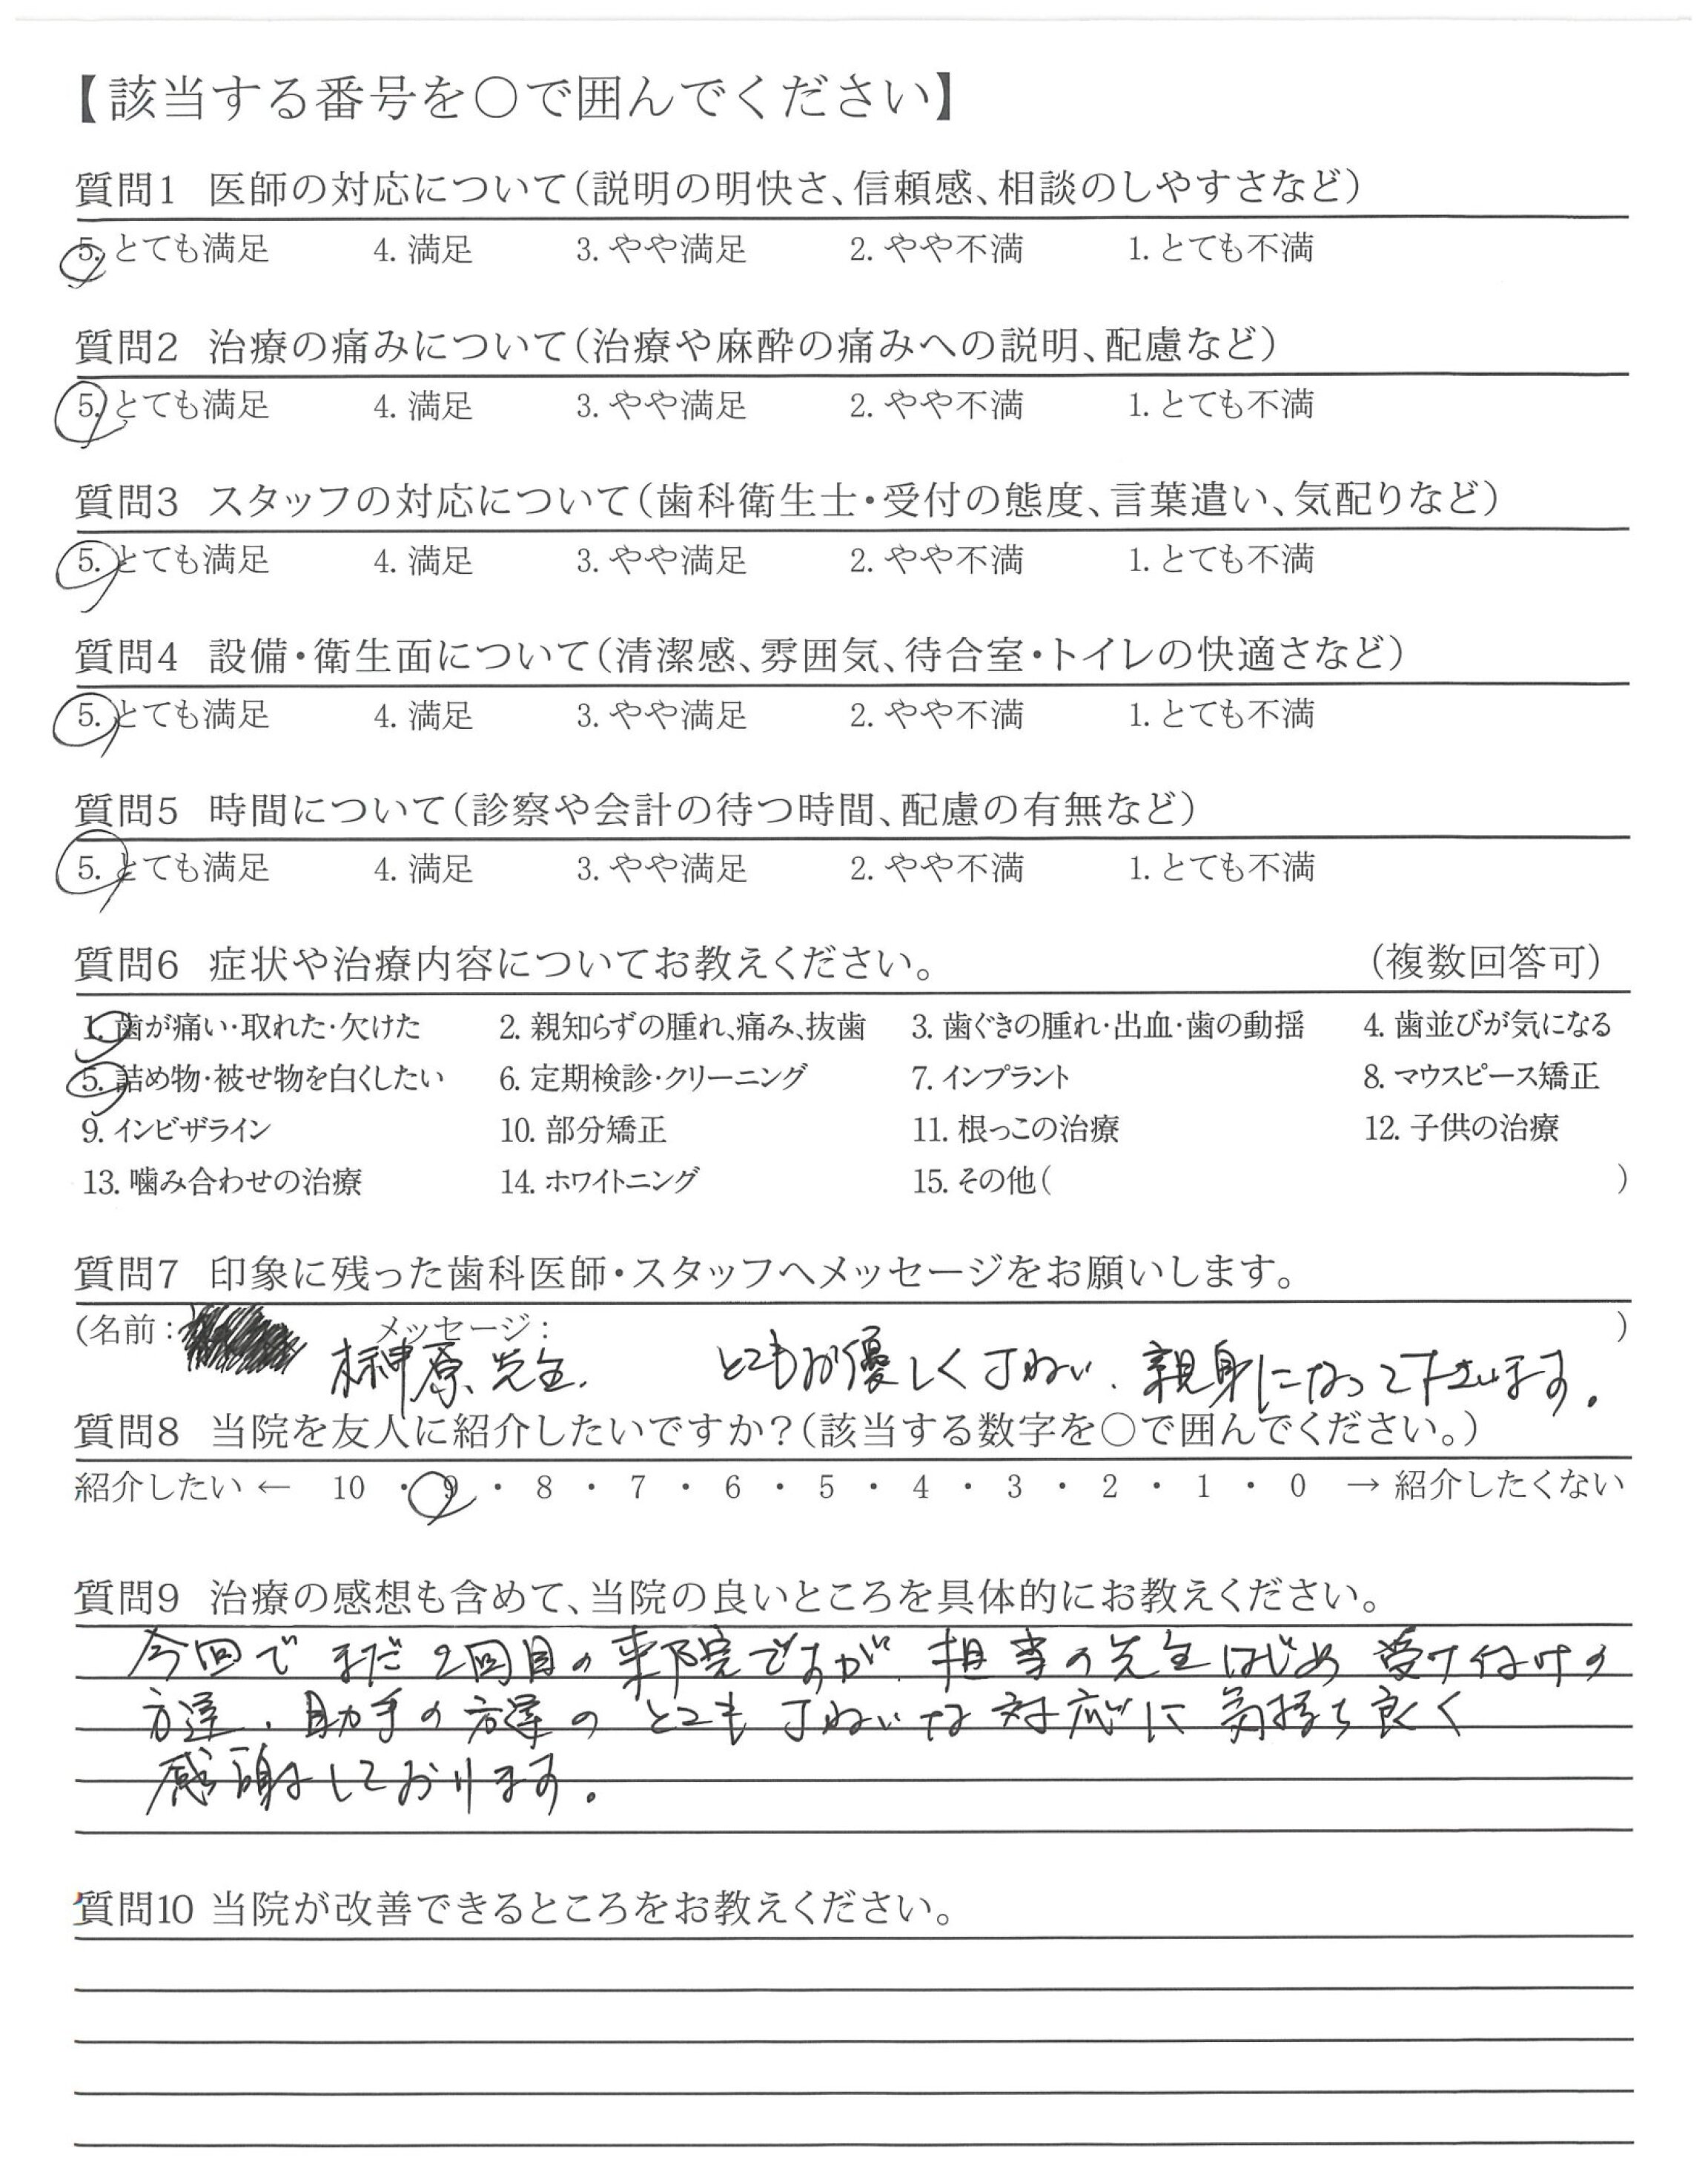 【該当する番号を○で囲んでください】
質問1 医師の対応について(説明の明快さ、信頼感、相談のしやすさなど)
5. とても満足 4. 満足 3. やや満足 2. やや不満 1. とても不満
質問2 治療の痛みについて(治療や麻酔の痛みへの説明、配慮など)
5. とても満足 4. 満足 3. やや満足 2. やや不満 1. とても不満
質問3 スタッフの対応について(歯科衛生士・受付の態度、言葉遣い、気配りなど)
5. とても満足 4. 満足 3. やや満足 2. やや不満 1. とても不満
質問4 設備・衛生面について(清潔感、雰囲気、待合室・トイレの快適さなど)
5. とても満足 4. 満足 3. やや満足 2. やや不満 1. とても不満
質問5 時間について(診察や会計の待つ時間、配慮の有無など)
5. とても満足 4. 満足 3. やや満足 2. やや不満 1. とても不満
質問6 症状や治療内容についてお教えください。 (複数回答可)
1. 歯が痛い・取れた・欠けた 2. 親知らずの腫れ、痛み、抜歯 3. 歯ぐきの腫れ・出血・歯の動揺 4. 歯並びが気になる
5. 詰め物・被せ物を白くしたい 6. 定期検診・クリーニング 7. インプラント 8. マウスピース矯正
9. インビザライン 10. 部分矯正 11. 根っこの治療 12. 子供の治療
13. 噛み合わせの治療 14. ホワイトニング 15. その他( )
質問7 印象に残った歯科医師・スタッフへメッセージをお願いします。
(名前: メッセージ: )
榊原先生. とてもお優しく丁ねい、親身になって下さいます。
質問8 当院を友人に紹介したいですか?(該当する数字を○で囲んでください。)
紹介したい ← 10 ・ 9 ・ 8 ・ 7 ・ 6 ・ 5 ・ 4 ・ 3 ・ 2 ・ 1 ・ 0 → 紹介したくない
質問9 治療の感想も含めて、当院の良いところを具体的にお教えください。
今回で まだ 2回目の来院ですが、担当の先生はじめ 受け付けの
方達、助手の方達の とても丁ねいな対応に気持ち良く
感謝しております。
質問10 当院が改善できるところをお教えください。